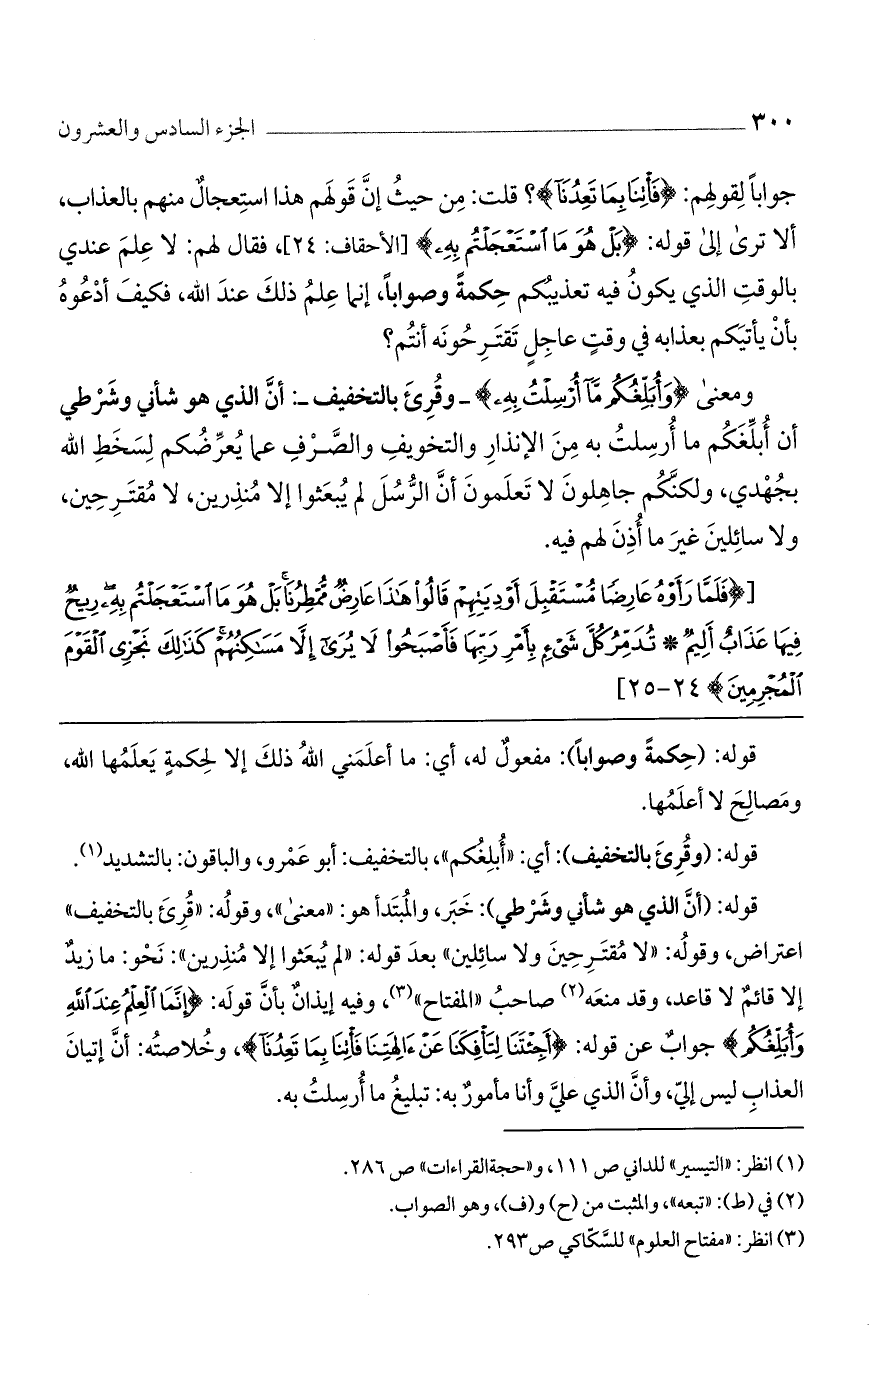 ٣٠٠ ــــــــ الجزء السادس والعشرون
جواباً لِقولهِم: ﴿فَأْتِنَا بِمَا تَعِدُنَآ﴾؟ قلت: مِن حيثُ إنَّ قَولَهم هذا استِعجالٌ منهم بالعذاب،
ألا ترىٰ إلىٰ قوله: ﴿بَلْ هُوَ مَا ٱسْتَعْجَلْتُم بِهِۦ﴾ [الأحقاف: ٢٤]، فقال لهم: لا عِلمَ عندي
بالوقتِ الذي يكونُ فيه تعذيبُكم حِكمةً وصواباً، إنما عِلمُ ذلكَ عندَ الله، فكيفَ أدْعُوهُ
بأنْ يأتيَكم بعذابه في وقتٍ عاجِلٍ تَقتَـرِحُونَه أنتُم؟
ومعنىٰ ﴿وَأُبَلِّغُكُم مَّآ أُرْسِلْتُ بِهِۦ﴾ ـ وقُرِئَ بالتخفيف ـ: أنَّ الذي هو شأني وشَرْطي
أن أُبلِّغَكُم ما أُرسِلتُ به مِنَ الإنذارِ والتخويفِ والصَّـرْفِ عما يُعرِّضُكم لِسَخَطِ الله
بجُهْدي، ولكنَّكُم جاهِلونَ لا تَعلَمونَ أنَّ الرُّسُلَ لم يُبعَثوا إلا مُنذِرين، لا مُقتَـرِحين،
ولا سائِلينَ غيرَ ما أُذِنَ لهم فيه.
[﴿فَلَمَّا رَأَوْهُ عَارِضًا مُّسْتَقْبِلَ أَوْدِيَتِهِمْ قَالُوا۟ هَـٰذَا عَارِضٌ مُّمْطِرُنَا ۚ بَلْ هُوَ مَا ٱسْتَعْجَلْتُم بِهِۦ ۖ رِيحٌ
فِيهَا عَذَابٌ أَلِيمٌ * تُدَمِّرُ كُلَّ شَىْءٍ بِأَمْرِ رَبِّهَا فَأَصْبَحُوا۟ لَا يُرَىٰٓ إِلَّا مَسَـٰكِنُهُمْ ۚ كَذَٰلِكَ نَجْزِى ٱلْقَوْمَ
ٱلْمُجْرِمِينَ﴾ ٢٤-٢٥]
قوله: (حِكمةً وصواباً): مفعولٌ له، أي: ما أعلَمَني اللهُ ذلكَ إلا لِحِكمةٍ يَعلَمُها الله،
ومَصالِحَ لا أعلَمُها.
قوله: (وقُرِئَ بالتخفيف): أي: «أُبلِغُكم»، بالتخفيف: أبو عَمْرو، والباقون: بالتشديد(١).
قوله: (أنَّ الذي هو شأني وشَرْطي): خَبَر، والمُبتَدأ هو: «معنىٰ»، وقولُه: «قُرِئَ بالتخفيف»
اعتراض، وقولُه: «لا مُقتَـرِحينَ ولا سائِلين» بعدَ قوله: «لم يُبعَثوا إلا مُنذِرين»: نَحْو: ما زيدٌ
إلا قائمٌ لا قاعد، وقد منعَه(٢) صاحبُ «المفتاح»(٣)، وفيه إيذانٌ بأنَّ قولَه: ﴿إِنَّمَا ٱلْعِلْمُ عِندَ ٱللَّهِ
وَأُبَلِّغُكُم﴾ جوابٌ عن قوله: ﴿أَجِئْتَنَا لِتَأْفِكَنَا عَنْ ءَالِهَتِنَا فَأْتِنَا بِمَا تَعِدُنَآ﴾، وخُلاصتُه: أنَّ إتيانَ
العذابِ ليس إليّ، وأنَّ الذي عليَّ وأنا مأمورٌ به: تبليغُ ما أُرسِلتُ به.
(١) انظر: «التيسير» للداني ص ١١١، و«حجةالقراءات» ص ٢٨٦.
(٢) في (ط): «تبعه»، والمثبت من (ح) و(ف)، وهو الصواب.
(٣) انظر: «مفتاح العلوم» للسَّكّاكي ص٢٩٣.